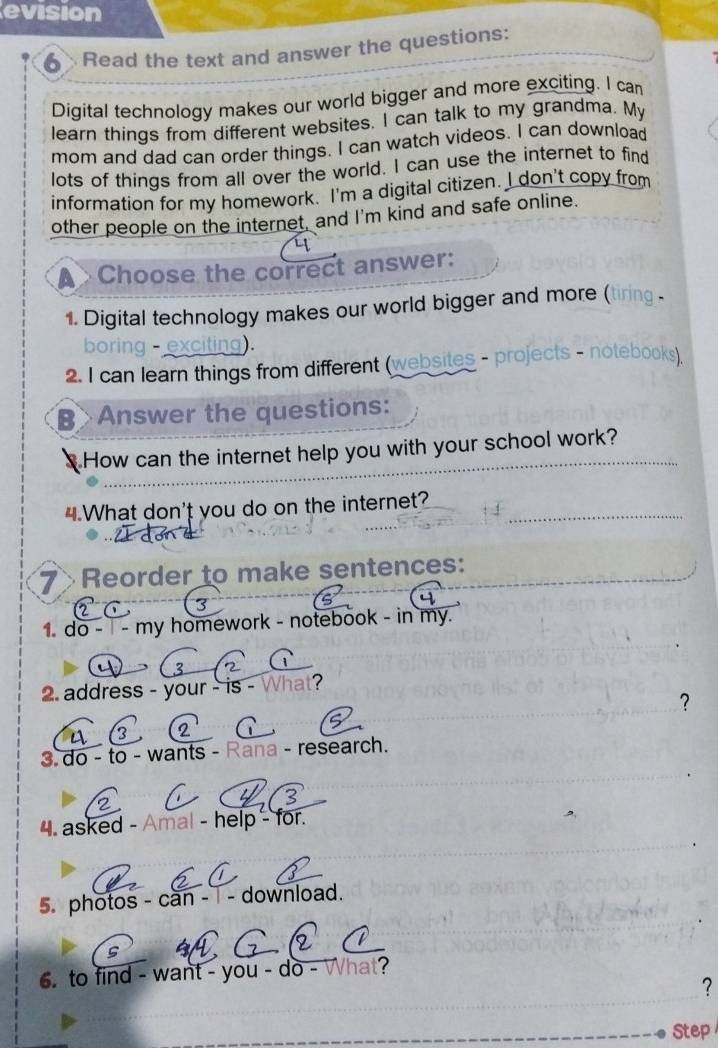 evision
6 Read the text and answer the questions:
Digital technology makes our world bigger and more exciting. I can
learn things from different websites. I can talk to my grandma. My
mom and dad can order things. I can watch videos. I can download
lots of things from all over the world. I can use the internet to find
information for my homework. I'm a digital citizen. I don't copy from
other people on the internet, and I'm kind and safe online.
4
A Choose the correct answer:
1. Digital technology makes our world bigger and more (tiring -
boring - exciting).
2. I can learn things from different (websites - projects - notebooks).
B Answer the questions:
3. How can the internet help you with your school work?
4. What don't you do on the internet?
I don't
7 Reorder to make sentences:
2 1 3 5 4
1. do - I - my homework - notebook - in my.
4 3 2 1
2. address - your - is - What?
?
4 3 2 1 5
3. do - to - wants - Rana - research.
.
2 1 4 3
4. asked - Amal - help - for.
.
4 2 1 3
5. photos - can - I - download.
.
5 4 3 2 1
6. to find - want - you - do - What?
?
Step